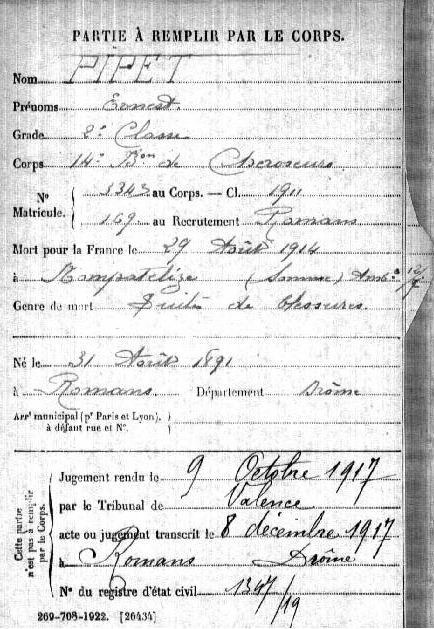 PARTIE À REMPLIR PAR LE CORPS.
Nom PIPET
Prénoms Ernest
Grade 2e Classe
Corps 14e Bon de Chasseurs
No Matricule. { 3343 au Corps. — Cl. 1911
169 au Recrutement Romans
Mort pour la France le 29 Août 1914
à (Somme)
Genre de mort Suite de blessures
Né le 31 Août 1891
à Romans Département Drôme
Arrt municipal (pr Paris et Lyon), à défaut rue et No.
Cette partie n'est pas à remplir par le Corps.
Jugement rendu le 9 Octobre 1917
par le Tribunal de Valence
acte ou jugement transcrit le 8 décembre 1917
à Romans Drôme
No du registre d'état civil 1347/19
269-708-1922. [26434]